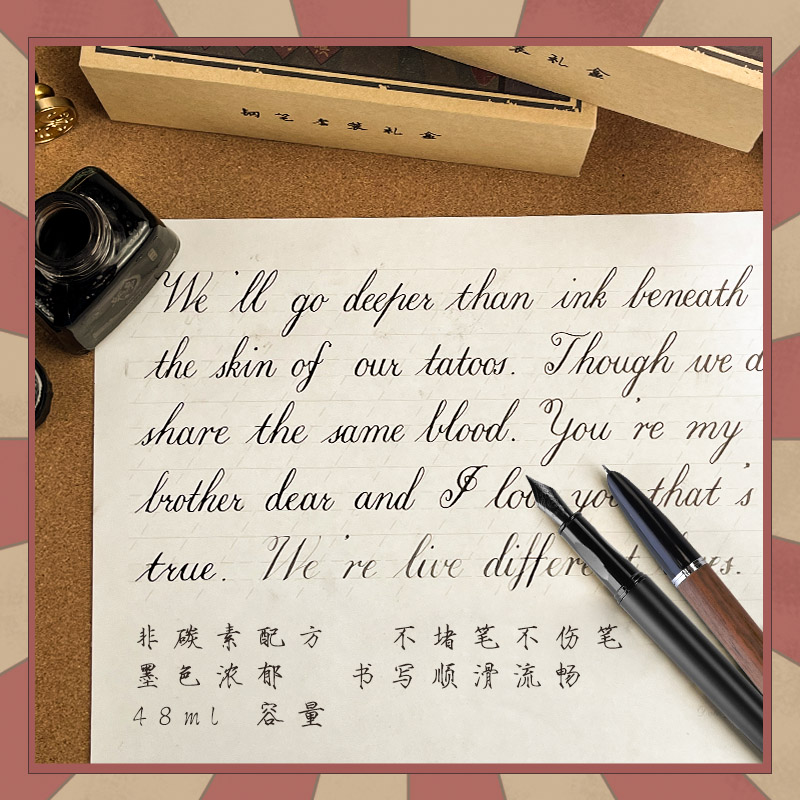 钢笔套装礼盒
装礼盒
We'll go deeper than ink beneath
the skin of our tatoos. Though we
share the same blood. You're my
brother dear and I love you that's
true. We're live different
非碳素配方 不堵笔不伤笔
墨色浓郁 书写顺滑流畅
48ml 容量